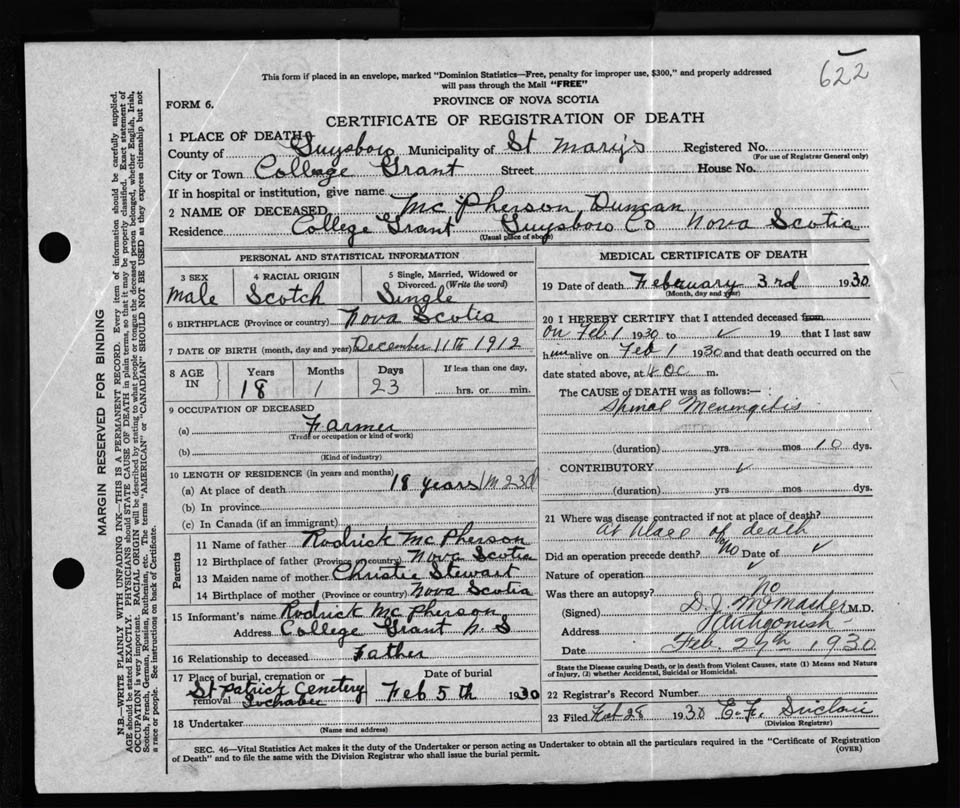 622
This form if placed in an envelope, marked "Dominion Statistics—Free, penalty for improper use, $300," and properly addressed
will pass through the Mail "FREE"
FORM 6.
PROVINCE OF NOVA SCOTIA
CERTIFICATE OF REGISTRATION OF DEATH
1 PLACE OF DEATH
County of Guysboro Municipality of St Mary's Registered No.
(For use of Registrar General only)
City or Town College Grant Street House No.
If in hospital or institution, give name
2 NAME OF DECEASED McPherson, Duncan
Residence College Grant Guysboro Co Nova Scotia
(Usual place of above)
PERSONAL AND STATISTICAL INFORMATION
3 SEX 4 RACIAL ORIGIN 5 Single, Married, Widowed or
Divorced. (Write the word)
Male Scotch Single
6 BIRTHPLACE (Province or country) Nova Scotia
7 DATE OF BIRTH (month, day and year) December 11th 1912
8 AGE IN Years Months Days If less than one day,
18 1 23 hrs. or min.
9 OCCUPATION OF DECEASED
(a) Farmer
(Trade or occupation or kind of work)
(b)
(Kind of industry)
10 LENGTH OF RESIDENCE (in years and months)
(a) At place of death 18 years 1m 23d
(b) In province
(c) In Canada (if an immigrant)
Parents
11 Name of father Rodrick McPherson
12 Birthplace of father (Province or country) Nova Scotia
13 Maiden name of mother Christie Stewart
14 Birthplace of mother (Province or country) Nova Scotia
15 Informant's name Rodrick McPherson
Address College Grant N.S
16 Relationship to deceased Father
17 Place of burial, cremation or removal Date of burial
St Patrick Cemetery Lochaber Feb 5th 1930
18 Undertaker
(Name and address)
MEDICAL CERTIFICATE OF DEATH
19 Date of death February 3rd 1930
(Month, day and year)
20 I HEREBY CERTIFY that I attended deceased from
on Feb 1 1930 to ✓ 19 that I last saw
him alive on Feb 1 1930 and that death occurred on the
date stated above, at m.
The CAUSE of DEATH was as follows:—
Spinal Meningitis
(duration) yrs. mos 10 dys.
CONTRIBUTORY ✓
(duration) yrs. mos dys.
21 Where was disease contracted if not at place of death?
At place of death
Did an operation precede death? No Date of ✓
Nature of operation ✓
Was there an autopsy? No
(Signed) M.D.
Address Antigonish
Date Feb. 27th 1930
State the Disease causing Death, or in death from Violent Causes, state (1) Means and Nature
of Injury, (2) whether Accidental, Suicidal or Homicidal.
22 Registrar's Record Number
23 Filed Feb 28 1930 Sinclair
(Division Registrar)
SEC. 46—Vital Statistics Act makes it the duty of the Undertaker or person acting as Undertaker to obtain all the particulars required in the "Certificate of Registration
of Death" and to file the same with the Division Registrar who shall issue the burial permit.
(OVER)
MARGIN RESERVED FOR BINDING
N.B.—WRITE PLAINLY WITH UNFADING INK—THIS IS A PERMANENT RECORD. Every item of information should be carefully supplied.
AGE should be stated EXACTLY. PHYSICIANS should STATE CAUSE OF DEATH in plain terms, so that it may be properly classified. Exact statement of
OCCUPATION is very important. RACIAL ORIGIN will be described by stating to what people or tongue the deceased person belonged, whether English, Irish,
Scotch, French, German, Russian, Ruthenian, etc. The terms "AMERICAN" or "CANADIAN" SHOULD NOT BE USED as they express citizenship but not
a race or people. See instructions on back of Certificate.